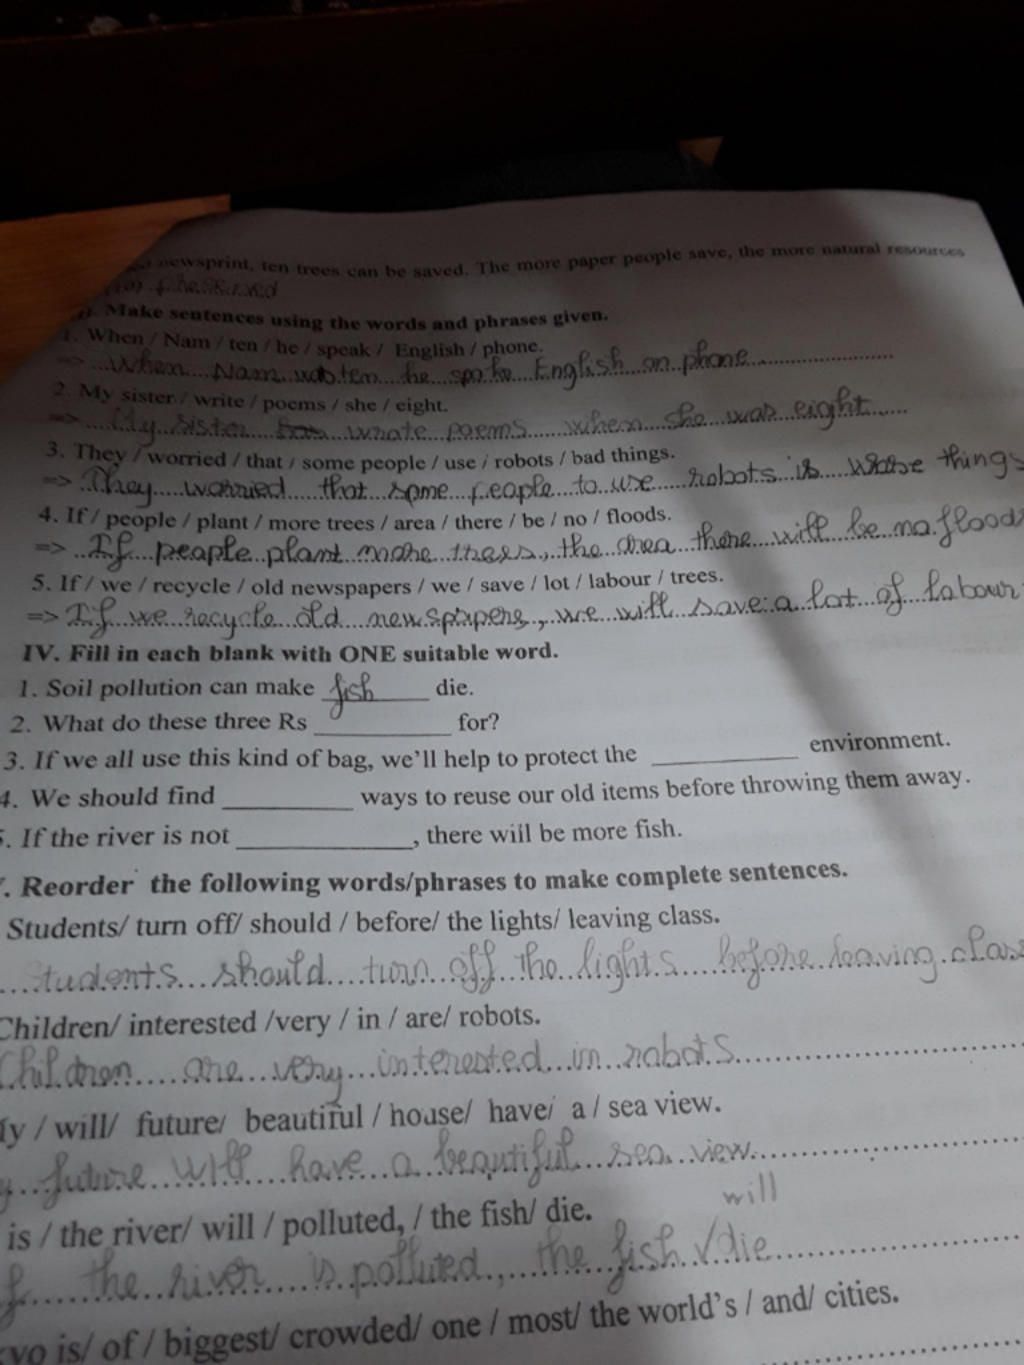 newsprint, ten trees can be saved. The more paper people save, the more natural resources
Make sentences using the words and phrases given.
1. When / Nam / ten / he / speak / English / phone.
=> When Nam was ten he spoke English on phone
2. My sister / write / poems / she / eight.
=> My sister wrote poems when she was eight
3. They / worried / that / some people / use / robots / bad things.
=> They worried that some people to use robots is things
4. If / people / plant / more trees / area / there / be / no / floods.
=> If people plant more trees, the area there will be no floods
5. If / we / recycle / old newspapers / we / save / lot / labour / trees.
=> If we recycle old newspapers, we will save a lot of labour
IV. Fill in each blank with ONE suitable word.
1. Soil pollution can make fish die.
2. What do these three Rs for?
3. If we all use this kind of bag, we'll help to protect the environment.
4. We should find ways to reuse our old items before throwing them away.
5. If the river is not , there will be more fish.
. Reorder the following words/phrases to make complete sentences.
Students/ turn off/ should / before/ the lights/ leaving class.
Students should turn off the lights before leaving class
Children/ interested /very / in / are/ robots.
Children are very interested in robots
y / will/ future/ beautiful / house/ have/ a / sea view.
y future will have a beautiful sea view
will
is / the river/ will / polluted, / the fish/ die.
f the river is polluted, the fish √ die
yo is/ of / biggest/ crowded/ one / most/ the world's / and/ cities.